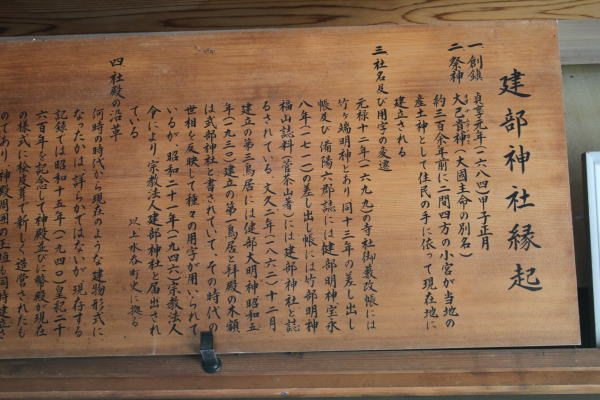 建部神社縁起
一 創鎮 貞享元年(一六八四)甲子正月
二 祭神 大己貴神(大國主命の別名)
約三百余年前に二間四方の小宮が当地の
産土神として住民の手に依って現在地に
建立される
三 社名及び用字の変遷
元禄十二年(一六九九)の寺社御藪改帳には
竹ヶ端明神とあり、同十三年の差し出し
帳及び備陽六郡誌には健部明神宝永
八年(一七一一)の差し出し帳には竹部明神
福山誌料(菅茶山著)には建部神社と誌
るされている。文久二年(一八六二)十二月
建立の第三鳥居には健部大明神昭和五
年(一九三〇)建立の第一鳥居と拝殿の木額
は武部神社と書されていて、その時代の
世相を反映して種々の用字が用いられて
いるが、昭和二十一年(一九四六)宗教法人
令により宗教法人建部神社と届出され
ている
以上水呑町史に拠る
四 社殿の沿革
何時の時代から現在のような建物形式に
なったかは詳らかではないが現存する
記録では昭和十五年(一九四〇)皇紀二千
六百年を記念して神殿並びに幣殿が現在
の様式に桧皮葺で新しく造営されたも
のであり、神殿周囲の玉垣も同時建立さ